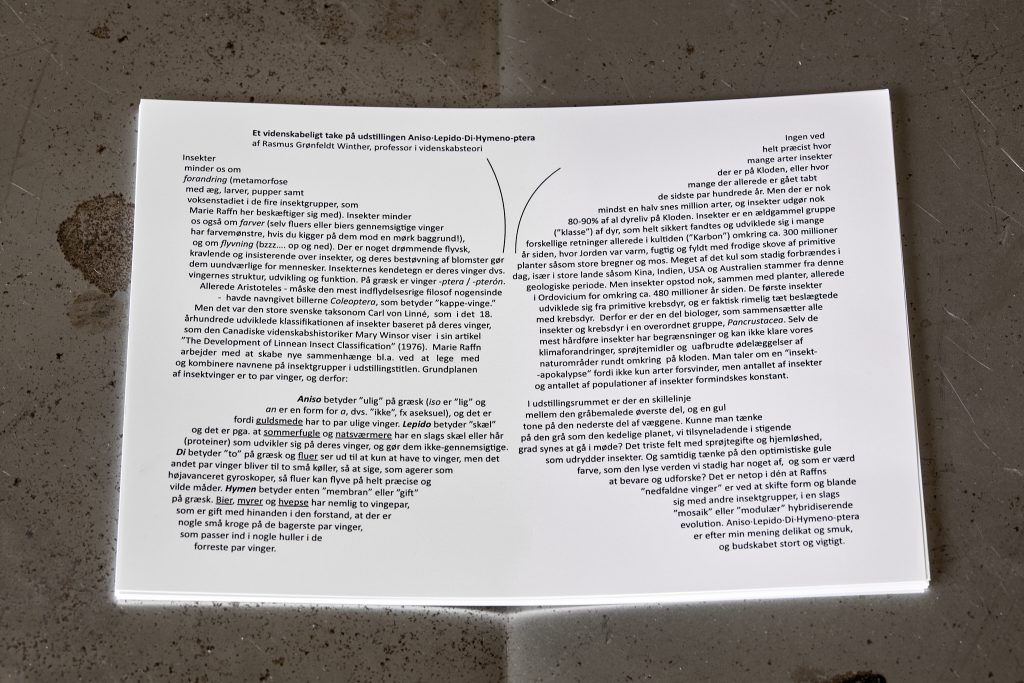 Et videnskabeligt take på udstillingen Aniso·Lepido·Di·Hymeno-ptera
af Rasmus Grønfeldt Winther, professor i videnskabsteori
Insekter
minder os om
forandring (metamorfose
med æg, larver, pupper samt
voksenstadiet i de fire insektgrupper, som
Marie Raffn her beskæftiger sig med). Insekter minder
os også om farver (selv fluers eller biers gennemsigtige vinger
har farvemønstre, hvis du kigger på dem mod en mørk baggrund!),
og om flyvning (bzzz.... op og ned). Der er noget drømmende flyvsk,
kravlende og insisterende over insekter, og deres bestøvning af blomster gør
dem uundværlige for mennesker. Insekternes kendetegn er deres vinger dvs.
vingernes struktur, udvikling og funktion. På græsk er vinger -ptera / -pterón.
Allerede Aristoteles - måske den mest indflydelsesrige filosof nogensinde
- havde navngivet billerne Coleoptera, som betyder "kappe-vinge."
Men det var den store svenske taksonom Carl von Linné, som i det 18.
århundrede udviklede klassifikationen af insekter baseret på deres vinger,
som den Canadiske videnskabshistoriker Mary Winsor viser i sin artikel
"The Development of Linnean Insect Classification" (1976). Marie Raffn
arbejder med at skabe nye sammenhænge bl.a. ved at lege med
og kombinere navnene på insektgrupper i udstillingstitlen. Grundplanen
af insektvinger er to par vinger, og derfor:
Aniso betyder "ulig" på græsk (iso er "lig" og
an er en form for a, dvs. "ikke", fx aseksuel), og det er
fordi guldsmede har to par ulige vinger. Lepido betyder "skæl"
og det er pga. at sommerfugle og natsværmere har en slags skæl eller hår
(proteiner) som udvikler sig på deres vinger, og gør dem ikke-gennemsigtige.
Di betyder "to" på græsk og fluer ser ud til at kun at have to vinger, men det
andet par vinger bliver til to små køller, så at sige, som agerer som
højavanceret gyroskoper, så fluer kan flyve på helt præcise og
vilde måder. Hymen betyder enten "membran" eller "gift"
på græsk. Bier, myrer og hvepse har nemlig to vingepar,
som er gift med hinanden i den forstand, at der er
nogle små kroge på de bagerste par vinger,
som passer ind i nogle huller i de
forreste par vinger.
Ingen ved
helt præcist hvor
mange arter insekter
der er på Kloden, eller hvor
mange der allerede er gået tabt
de sidste par hundrede år. Men der er nok
mindst en halv snes million arter, og insekter udgør nok
80-90% af al dyreliv på Kloden. Insekter er en ældgammel gruppe
("klasse") af dyr, som helt sikkert fandtes og udviklede sig i mange
forskellige retninger allerede i kultiden ("Karbon") omkring ca. 300 millioner
år siden, hvor Jorden var varm, fugtig og fyldt med frodige skove af primitive
planter såsom store bregner og mos. Meget af det kul som stadig forbrændes i
dag, især i store lande såsom Kina, Indien, USA og Australien stammer fra denne
geologiske periode. Men insekter opstod nok, sammen med planter, allerede
i Ordovicium for omkring ca. 480 millioner år siden. De første insekter
udviklede sig fra primitive krebsdyr, og er faktisk rimelig tæt beslægtede
med krebsdyr. Derfor er der en del biologer, som sammensætter alle
insekter og krebsdyr i en overordnet gruppe, Pancrustacea. Selv de
mest hårdføre insekter har begrænsninger og kan ikke klare vores
klimaforandringer, sprøjtemidler og uafbrudte ødelæggelser af
naturområder rundt omkring på kloden. Man taler om en "insekt-
-apokalypse" fordi ikke kun arter forsvinder, men antallet af insekter
og antallet af populationer af insekter formindskes konstant.
I udstillingsrummet er der en skillelinje
mellem den gråbemalede øverste del, og en gul
tone på den nederste del af væggene. Kunne man tænke
på den grå som den kedelige planet, vi tilsyneladende i stigende
grad synes at gå i møde? Det triste felt med sprøjtegifte og hjemløshed,
som udrydder insekter. Og samtidig tænke på den optimistiske gule
farve, som den lyse verden vi stadig har noget af, og som er værd
at bevare og udforske? Det er netop i dén at Raffns
"nedfaldne vinger" er ved at skifte form og blande
sig med andre insektgrupper, i en slags
"mosaik" eller "modulær" hybridiserende
evolution. Aniso·Lepido·Di·Hymeno-ptera
er efter min mening delikat og smuk,
og budskabet stort og vigtigt.